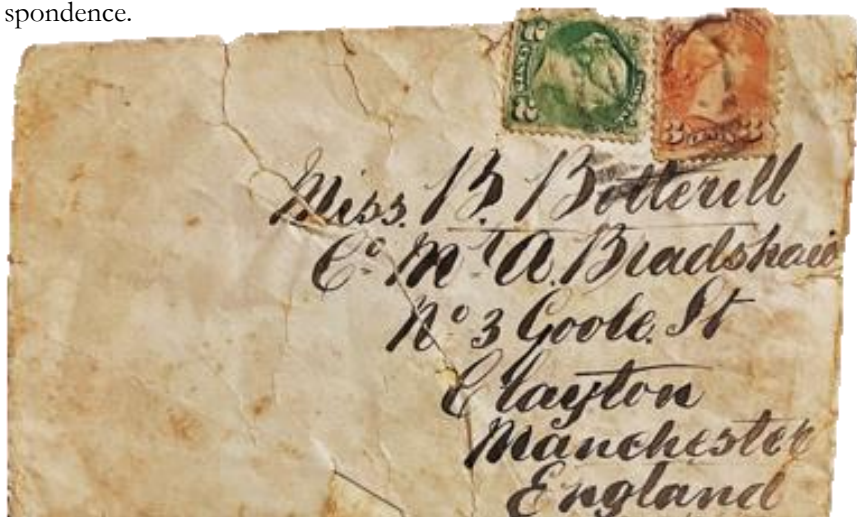 spondence.
Miss. B. Botterill
C° Mr A. Bradshaw
N° 3 Goole. St
Clayton
Manchester
England